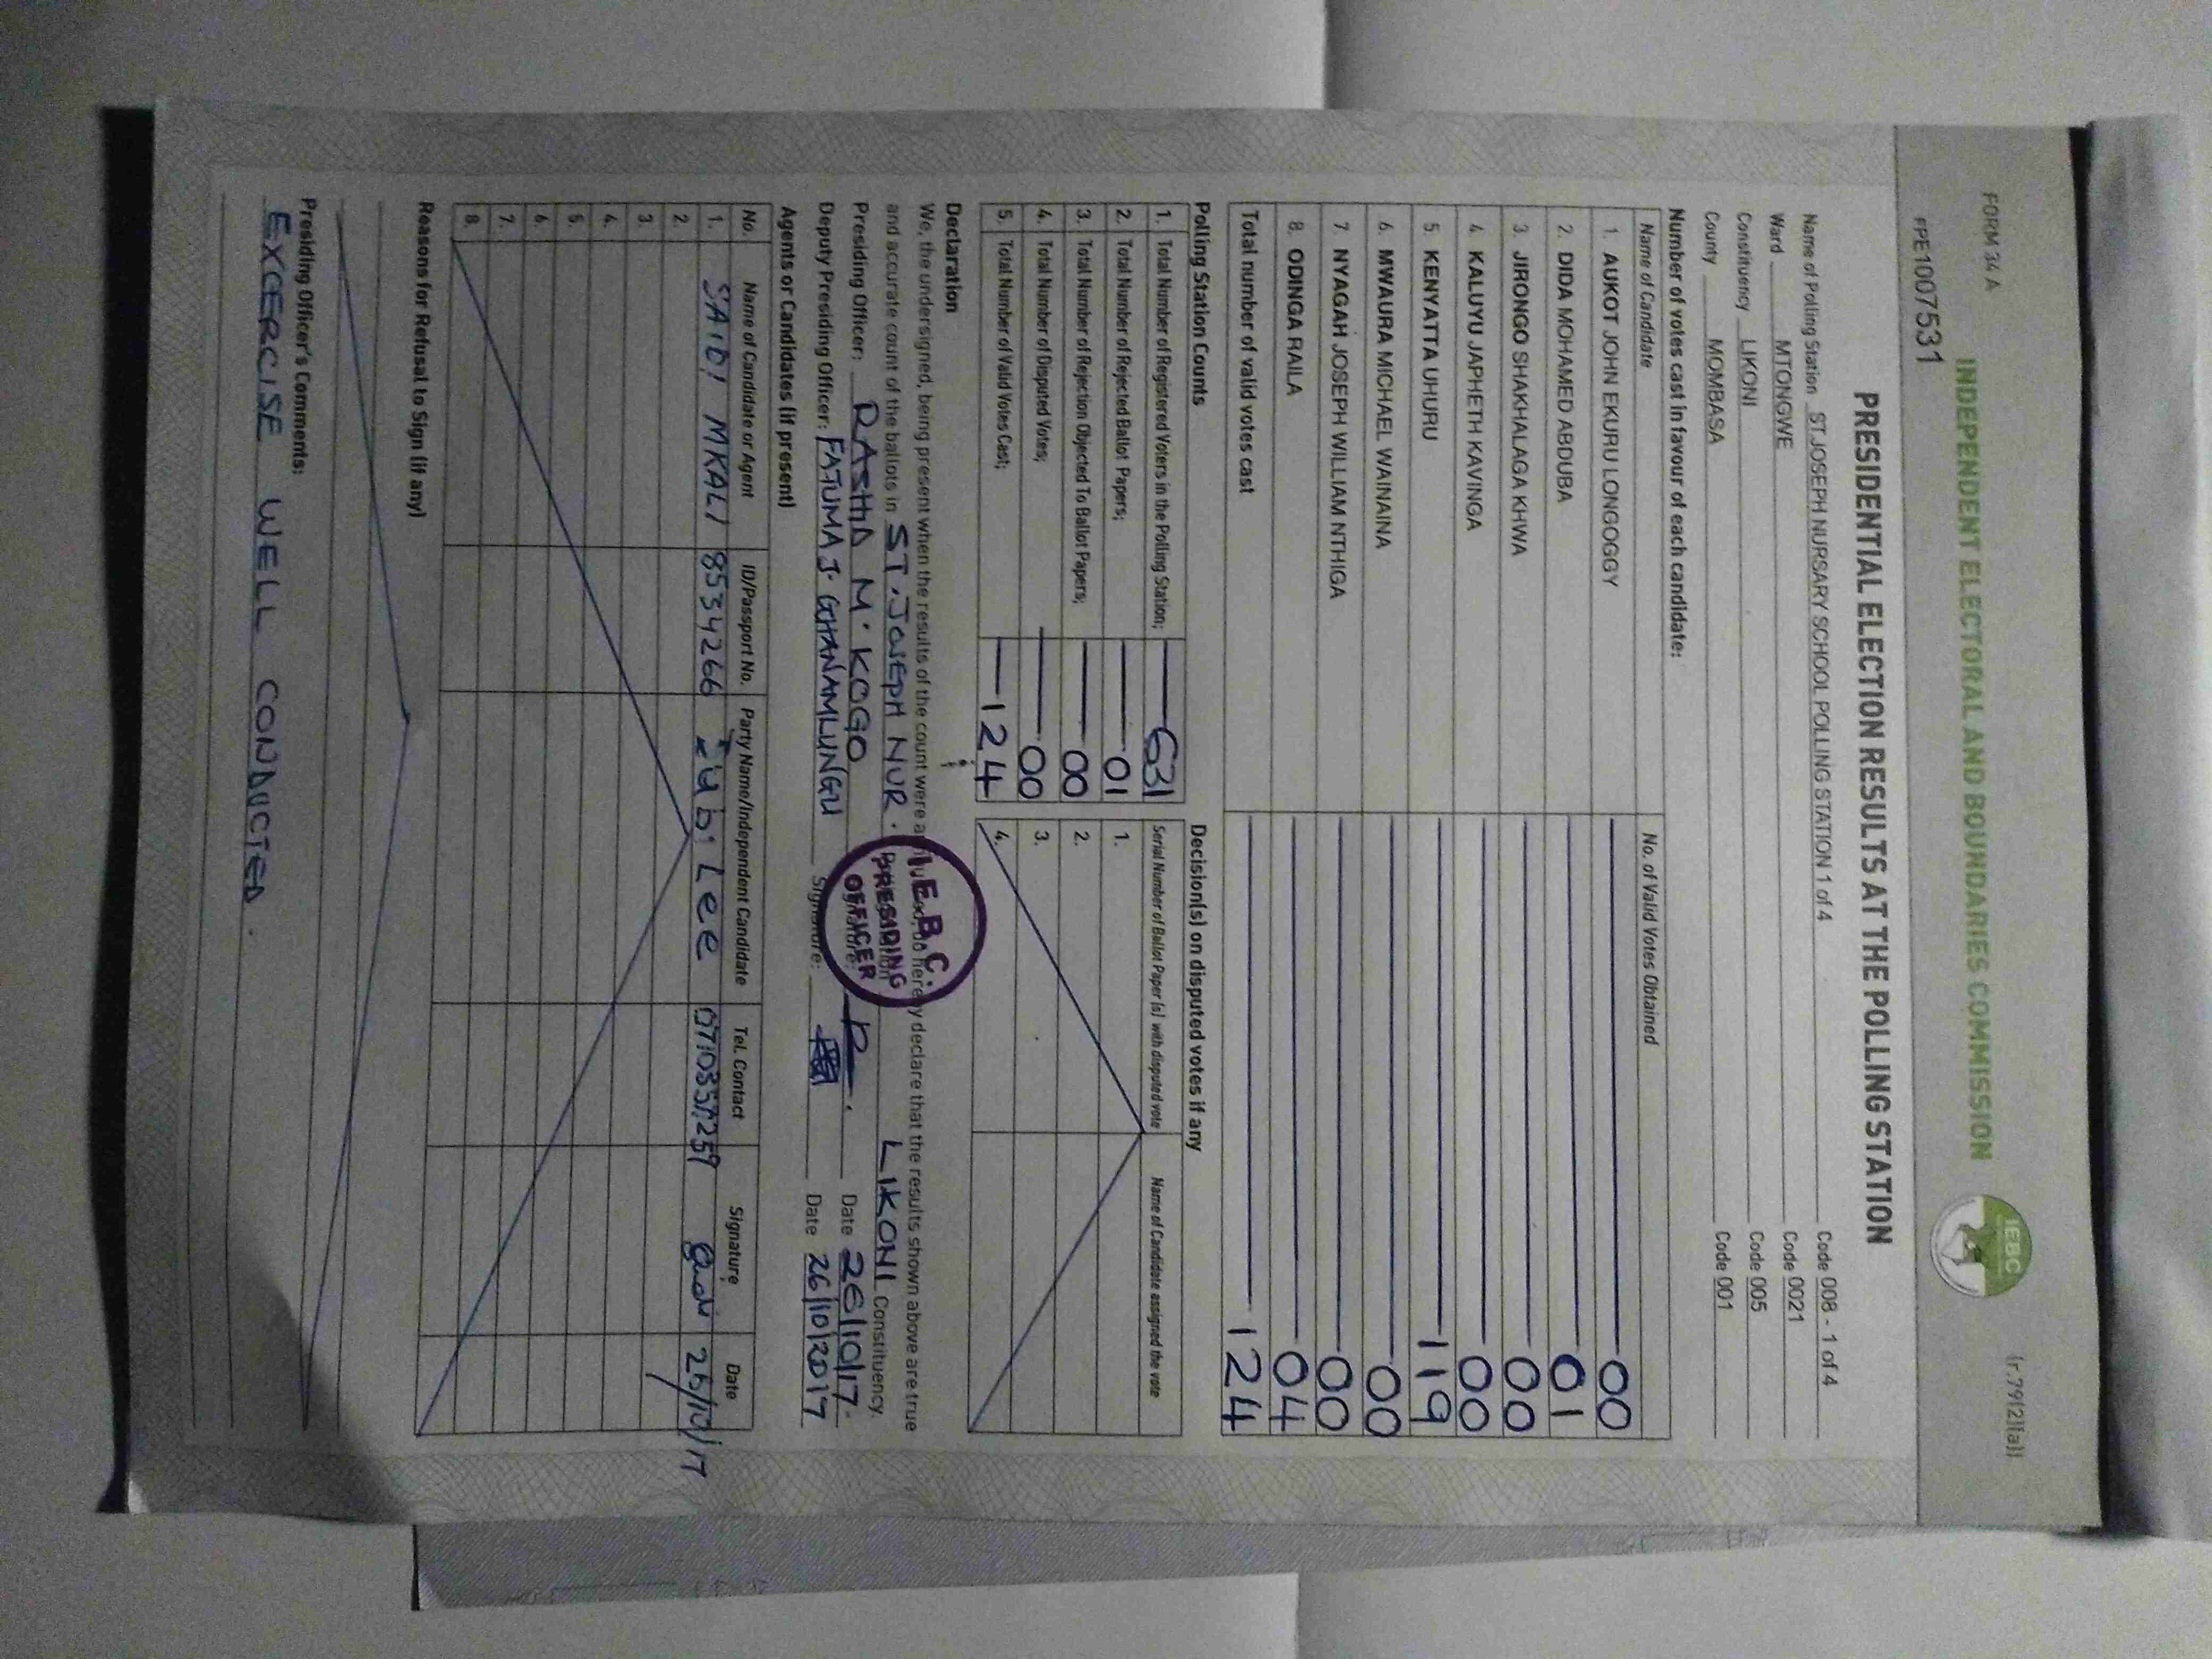 FORM 34 A
(r.79(2)(a))
INDEPENDENT ELECTORAL AND BOUNDARIES COMMISSION
IEBC
PE1007531
PRESIDENTIAL ELECTION RESULTS AT THE POLLING STATION
Name of Polling Station ST.JOSEPH NURSARY SCHOOL POLLING STATION 1 of 4 Code 008 - 1 of 4
Ward MTONGWE Code 0021
Constituency LIKONI Code 005
County MOMBASA Code 001
Number of votes cast in favour of each candidate:
Name of Candidate No. of Valid Votes Obtained
1. AUKOT JOHN EKURU LONGOGGY 00
2. DIDA MOHAMED ABDUBA 01
3 JIRONGO SHAKHALAGA KHWA 00
4 KALUYU JAPHETH KAVINGA 00
5 KENYATTA UHURU 119
6. MWAURA MICHAEL WAINAINA 00
7 NYAGAH JOSEPH WILLIAM NTHIGA 00
8. ODINGA RAILA 04
Total number of valid votes cast 124
Polling Station Counts
1. Total Number of Registered Voters in the Polling Station; 631
2. Total Number of Rejected Ballot Papers; 01
3. Total Number of Rejection Objected To Ballot Papers; 00
4. Total Number of Disputed Votes; 00
5. Total Number of Valid Votes Cast; 124
Decision(s) on disputed votes if any
Serial Number of Ballot Paper (s) with disputed vote Name of Candidate assigned the vote
1.
2.
3.
4.
Declaration
We, the undersigned, being present when the results of the count were declare that the results shown above are true
and accurate count of the ballots in ST. JOSEPH NUR. LIKONI Constituency.
Presiding Officer: RASHID M. KOGO Date 26/10/17
Deputy Presiding Officer: FATUMA J. Signature: Date 26/10/2017
I.E.B.C.
PRESIDING
OFFICER
Agents or Candidates (if present)
No. Name of Candidate or Agent ID/Passport No. Party Name/Independent Candidate Tel. Contact Signature Date
1. SAIDI MKALI 8534266 Jubilee
2.
3.
4.
5.
6.
7.
8.
Reasons for Refusal to Sign (if any)
Presiding Officer's Comments:
EXCERCISE WELL CONDUCTED.